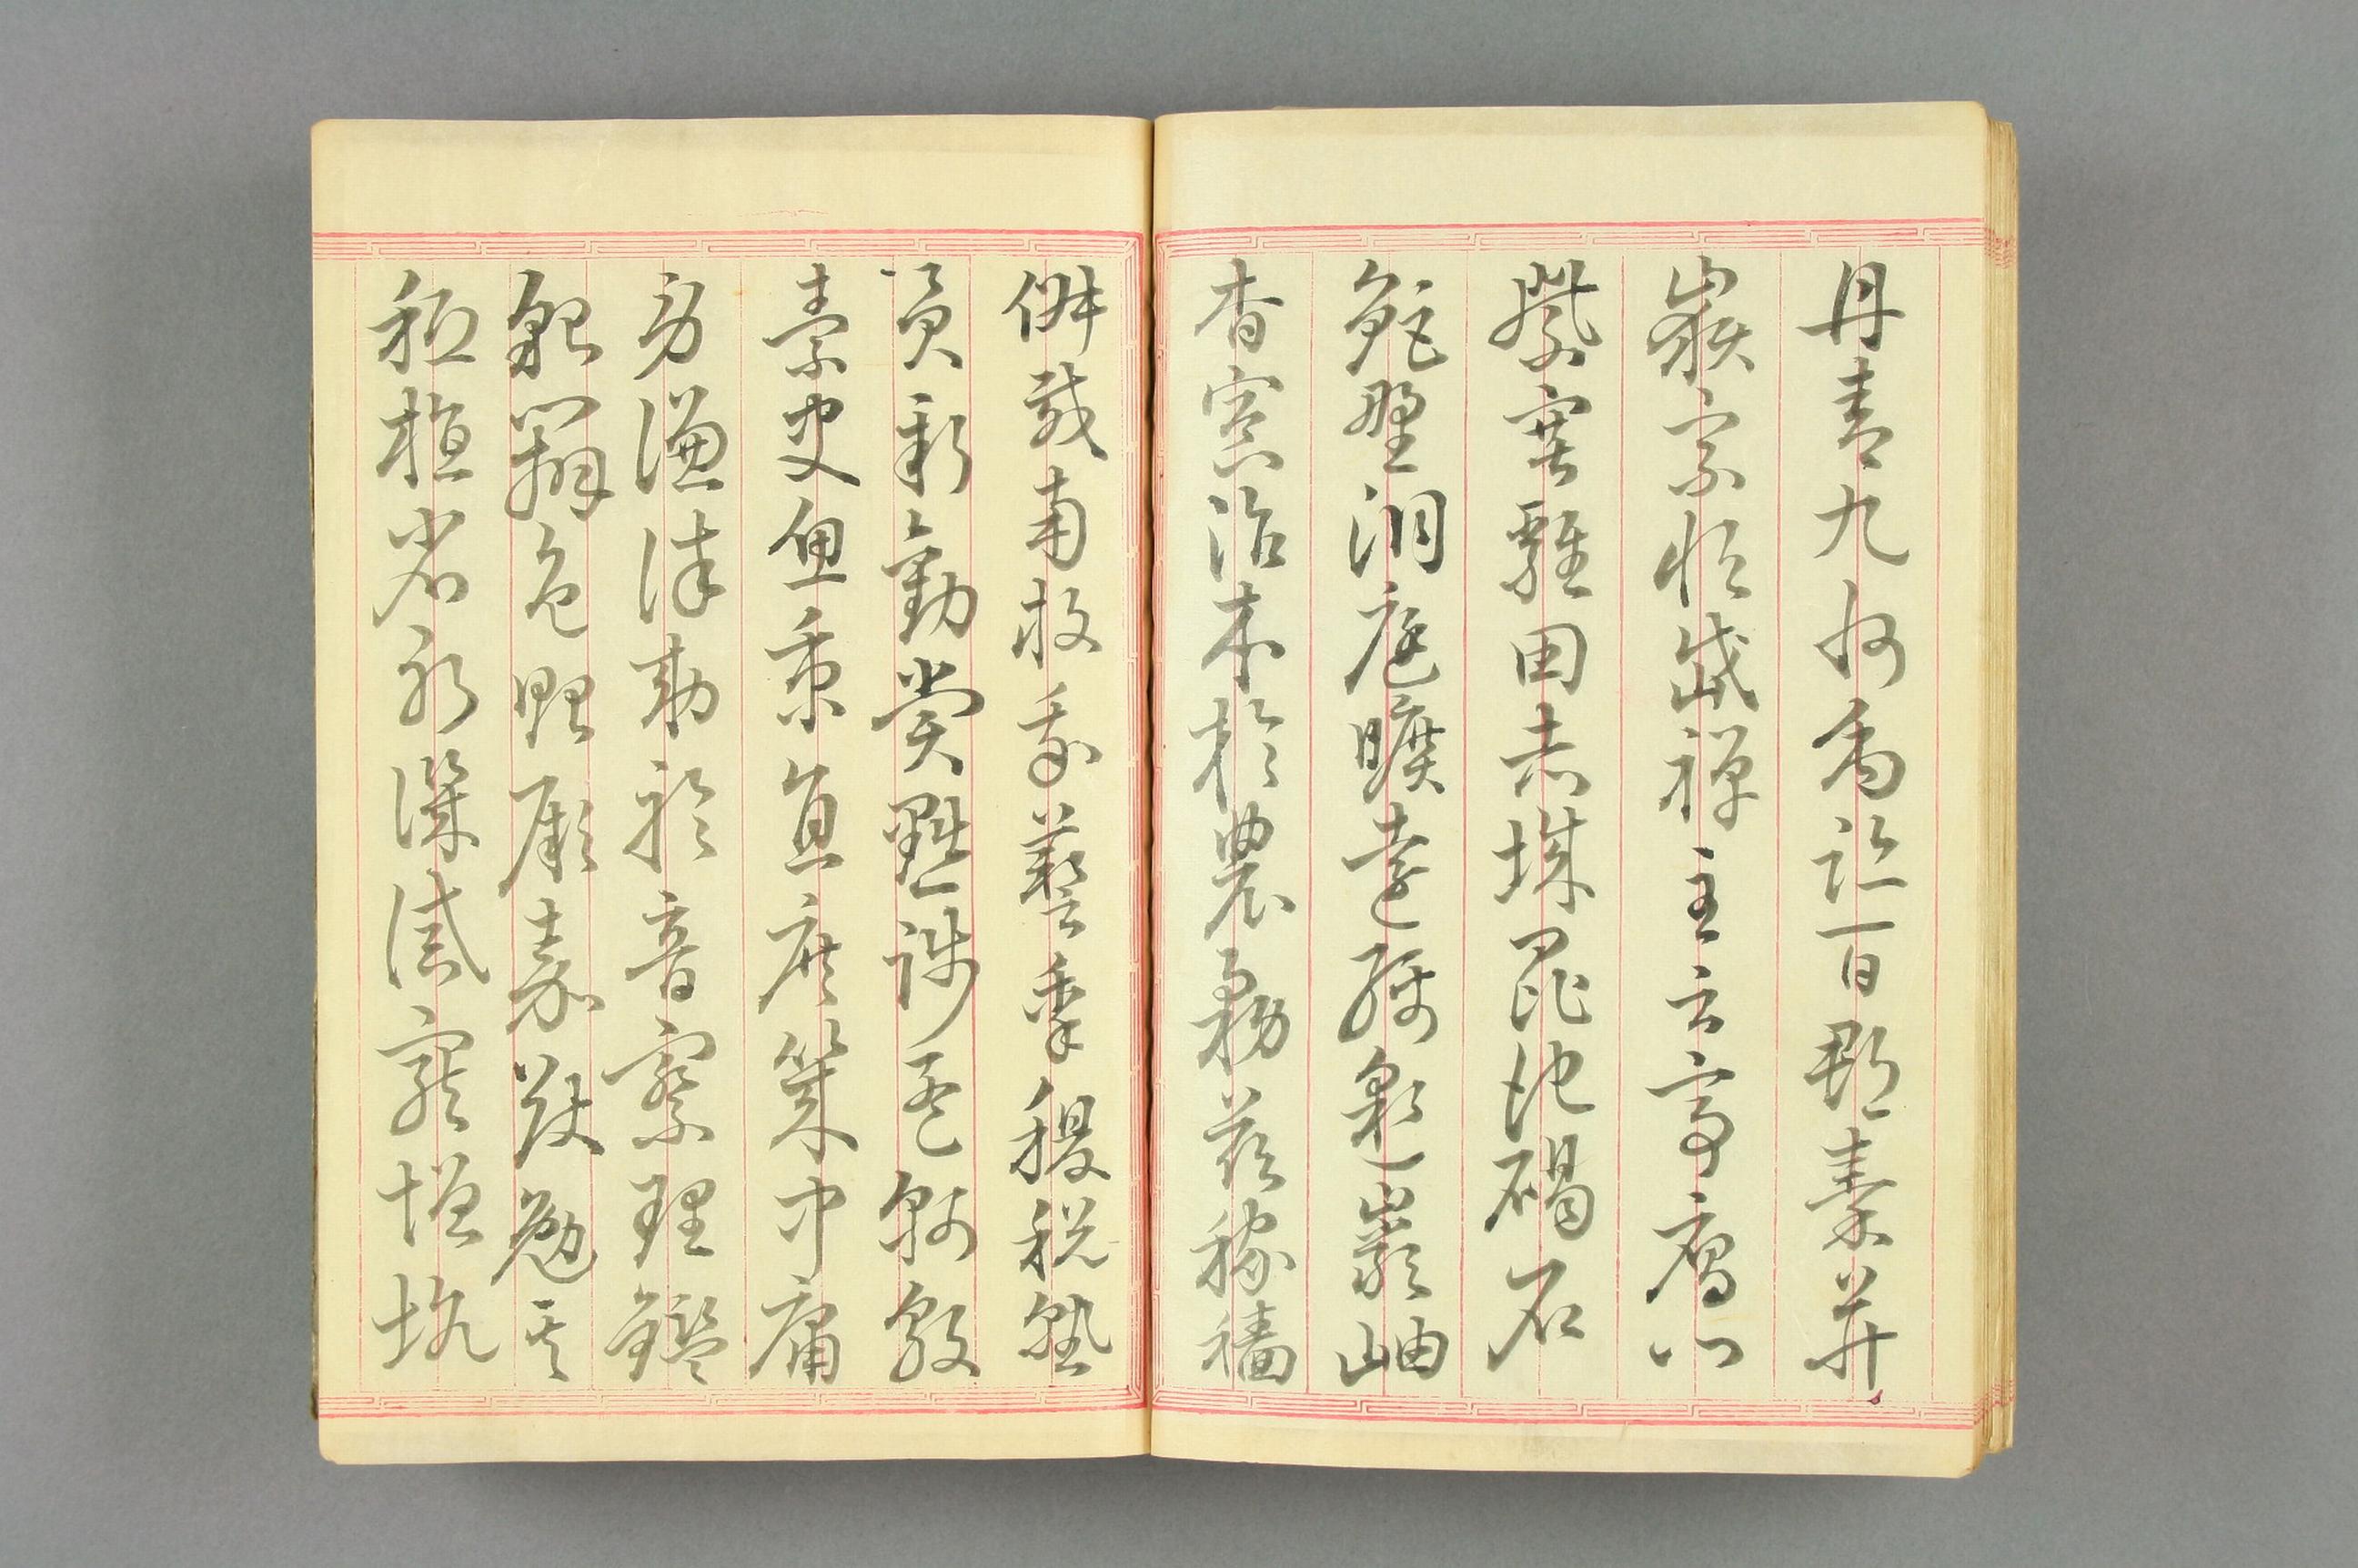 丹青九州禹跡百郡秦并
嶽宗恒岱禪主云亭雁門
紫塞雞田赤城昆池碣石
鉅野洞庭曠遠綿邈巖岫
杳冥治本於農務茲稼穡
俶載南畝我藝黍稷稅熟
貢新勸賞黜陟孟軻敦
素史魚秉直庶幾中庸
勞謙謹敕聆音察理鑑
貌辨色貽厥嘉猷勉其
祗植省躬譏誡寵增抗